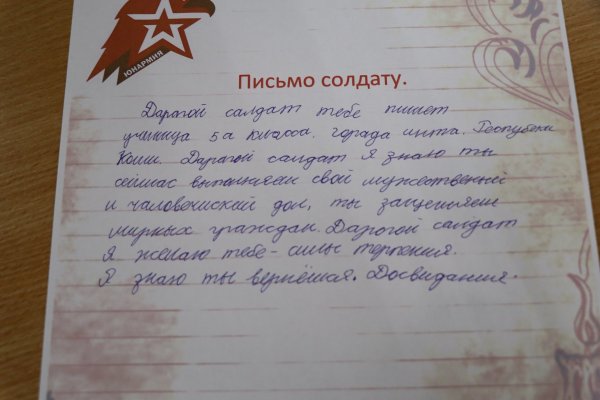 ЮНАРМИЯ
Письмо солдату.
Дарагой салдат тебе пишет
ученица 5а класса. города инта. Республеки
Коми. Дарагой салдат Я знаю ты
сейчас выполняеш свой мужественный
и чаловечиский дол, ты защещяеш
мирных граждан. Дарогой салдат
Я желаю тебе - силы терпения.
Я знаю ты вернёшся. Досвидания.